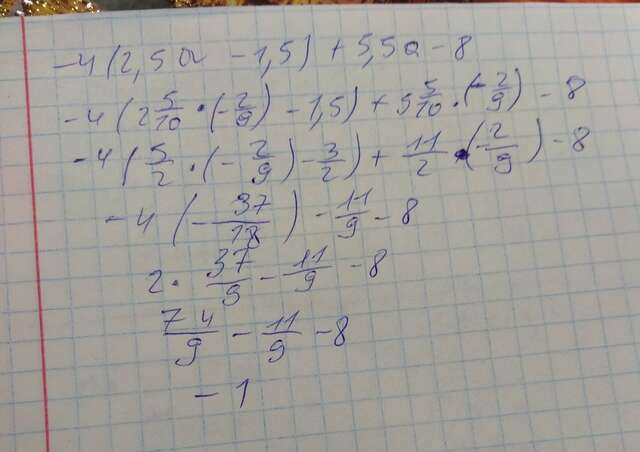 -4(2,5a - 1,5) + 5,5a - 8
-4(2 5/10 · (-2/9) - 1,5) + 5 5/10 · (-2/9) - 8
-4(5/2 · (-2/9) - 3/2) + 11/2 · (-2/9) - 8
-4(-37/18) - 11/9 - 8
2 · 37/9 - 11/9 - 8
74/9 - 11/9 - 8
-1